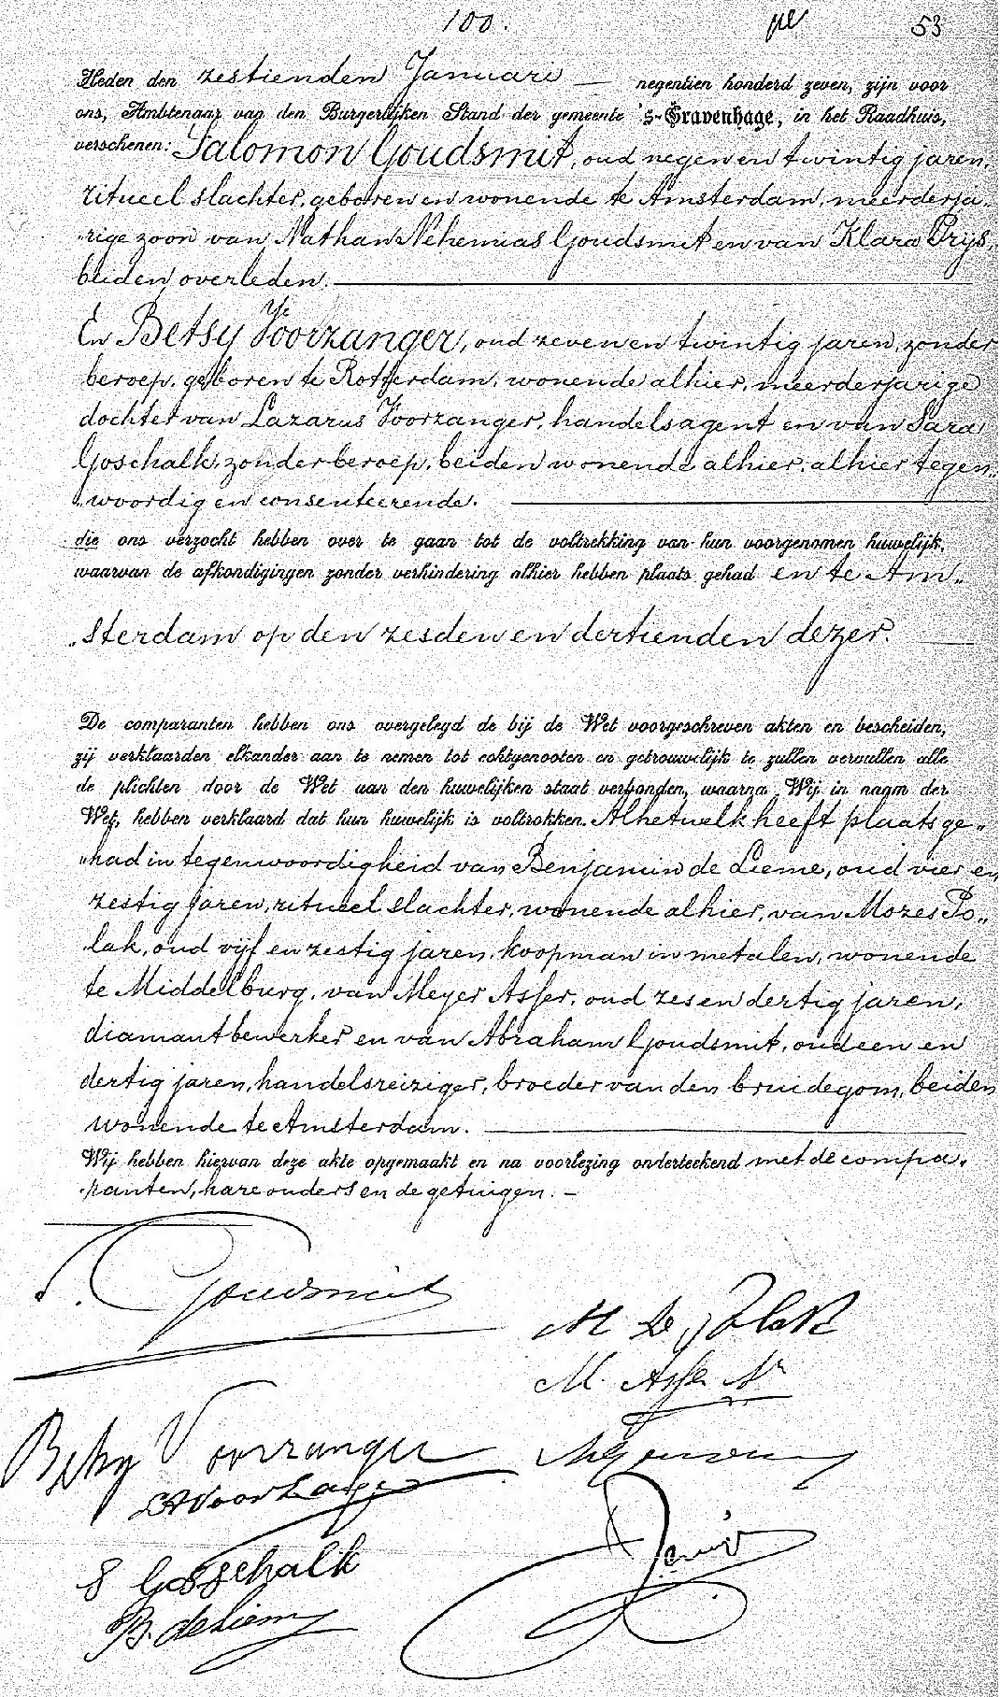 100.
53
Heden den zestienden Januari — negentien honderd zeven, zijn voor
ons, Ambtenaar van den Burgerlijken Stand der gemeente 's-Gravenhage, in het Raadhuis,
verschenen: Salomon Goudsmit, oud negen en twintig jaren,
ritueel slachter, geboren en wonende te Amsterdam, meerderja-
„rige zoon van Nathan Nehemias Goudsmit en van Klara Prijs,
beiden overleden.
En Betsy Voorzanger, oud zeven en twintig jaren, zonder
beroep, geboren te Rotterdam, wonende alhier, meerderjarige
dochter van Lazarus Voorzanger, handelsagent en van Sara
Goschalk, zonder beroep, beiden wonende alhier, alhier tegen„
„woordig en consenteerende.
die ons verzocht hebben over te gaan tot de voltrekking van hun voorgenomen huwelijk,
waarvan de afkondigingen zonder verhindering alhier hebben plaats gehad en te Am„
„sterdam op den zesden en dertienden dezer.
De comparanten hebben ons overgelegd de bij de Wet voorgeschreven akten en bescheiden,
zij verklaarden elkander aan te nemen tot echtgenooten en getrouwelijk te zullen vervullen alle
de plichten door de Wet aan den huwelijken staat verbonden, waarna Wij in naam der
Wet, hebben verklaard dat hun huwelijk is voltrokken. Alhetwelk heeft plaats ge„
„had in tegenwoordigheid van Benjamin de Lieme, oud vier en
zestig jaren, ritueel slachter, wonende alhier, van Mozes Po„
lak, oud vijf en zestig jaren, koopman in metalen, wonende
te Middelburg, van Meyer Asser, oud zes en dertig jaren,
diamantbewerker en van Abraham Goudsmit, oud een en
dertig jaren, handelsreiziger, broeder van den bruidegom, beiden
wonende te Amsterdam.
Wij hebben hiervan deze akte opgemaakt en na voorlezing onderteekend met de compa„
ranten, hare ouders en de getuigen. —
S. Goudsmit
M de Polak
M. Asser
Betsy Voorzanger
A Goudsmit
LA Voorzanger
S Goschalk
B. de Lieme